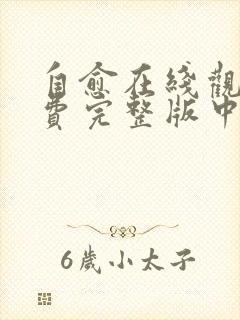 自愈在线觀
費完整版中
6歲小太子